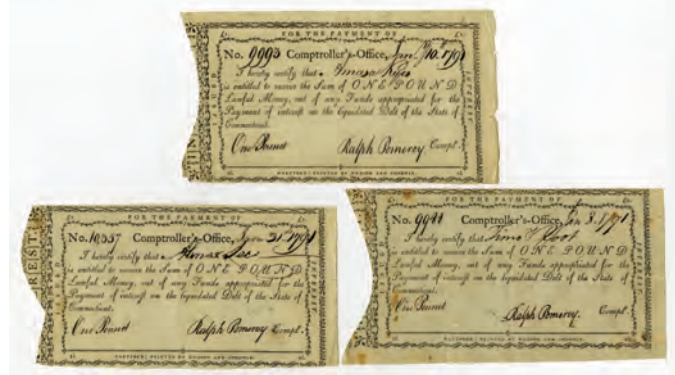 FOR THE PAYMENT OF
No. 9993 Comptroller's-Office, Jan. 10. 1791
I hereby certify that
is entitled to receive the Sum of ONE POUND
Lawful Money, out of any Funds appropriated for the
Payment of interest on the liquidated Debt of the State of
Connecticut.
One Pound Ralph Pomeroy Compt.
INTEREST
HARTFORD: PRINTED BY HUDSON AND GOODWIN.
FOR THE PAYMENT OF
No. 10357 Comptroller's-Office, 21. 1791
I hereby certify that
is entitled to receive the Sum of ONE POUND
Lawful Money, out of any Funds appropriated for the
Payment of interest on the liquidated Debt of the State of
Connecticut.
One Pound Ralph Pomeroy Compt.
INTEREST
HARTFORD: PRINTED BY HUDSON AND GOODWIN.
FOR THE PAYMENT OF
No. 9911 Comptroller's-Office, Jan 8. 1791
I hereby certify that Root
is entitled to receive the Sum of ONE POUND
Lawful Money, out of any Funds appropriated for the
Payment of interest on the liquidated Debt of the State of
Connecticut.
One Pound Ralph Pomeroy. Compt.
INTEREST
HARTFORD: PRINTED BY HUDSON AND GOODWIN.